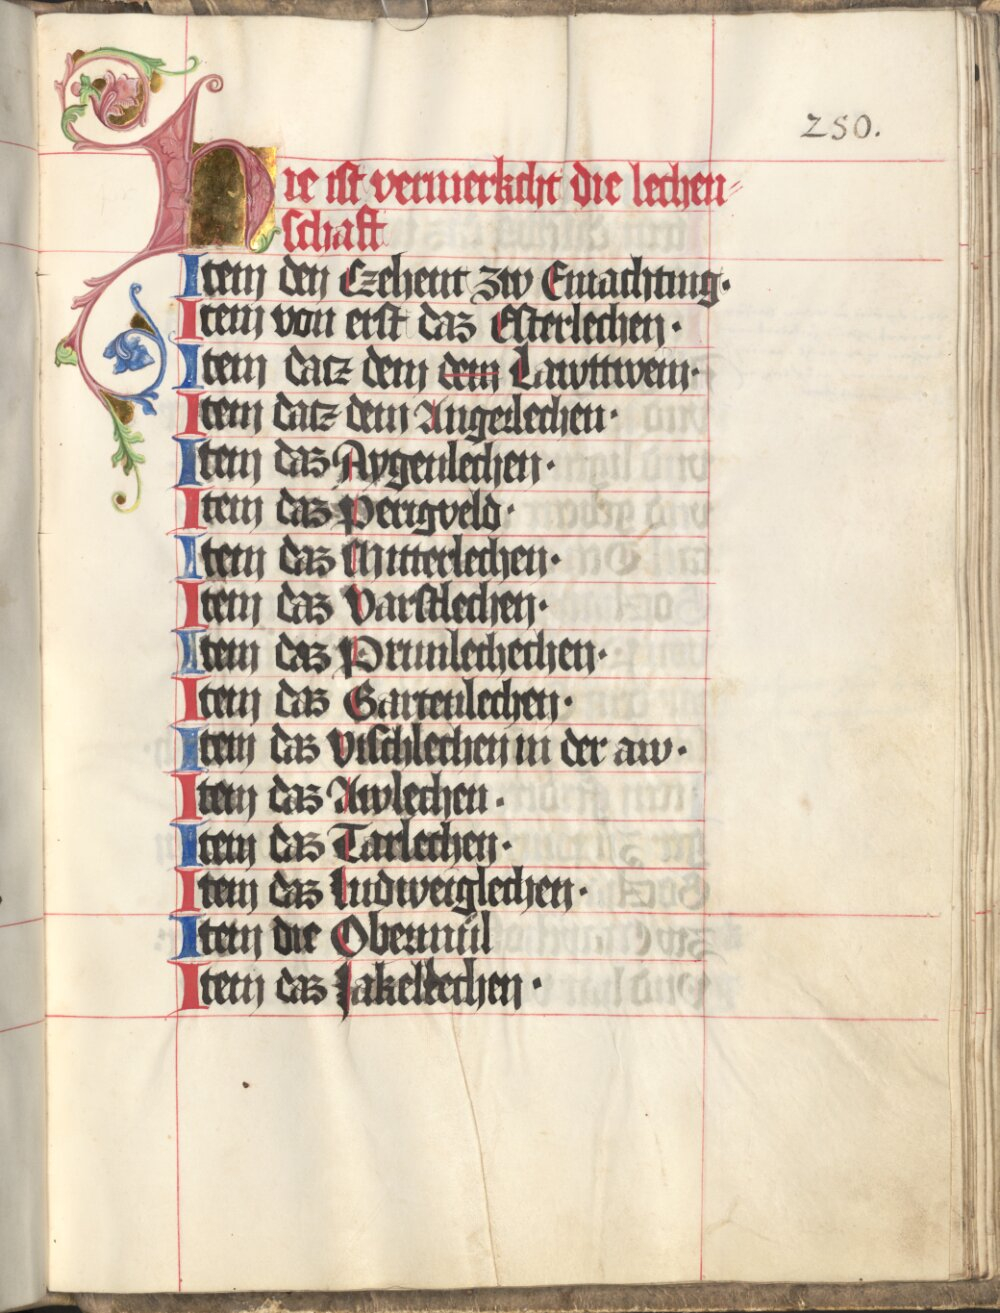 250.
Hie ist vermerkcht die lechen=
schafft
Item den Czehent zw Emachting.
Item von erst das Esterlechen.
Item datz dem dem Lawttwein.
Item datz dem Angerlechen.
Item das Aygenlechen.
Item das Perigveld.
Item das Mitterlechen.
Item das Varstlechen.
Item das Prunlechechen.
Item das Gartenlechen.
Item das Vischlechen in der aw.
Item das Awlechen.
Item das Tarlechen.
Item das Ludweiglechen.
Item die Obermül
Item das Jakellechen.